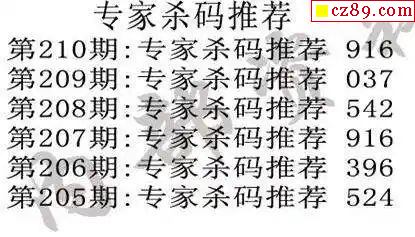 专家杀码推荐
cz89.com
第210期:专家杀码推荐 916
第209期:专家杀码推荐 037
第208期:专家杀码推荐 542
第207期:专家杀码推荐 916
第206期:专家杀码推荐 396
第205期:专家杀码推荐 524